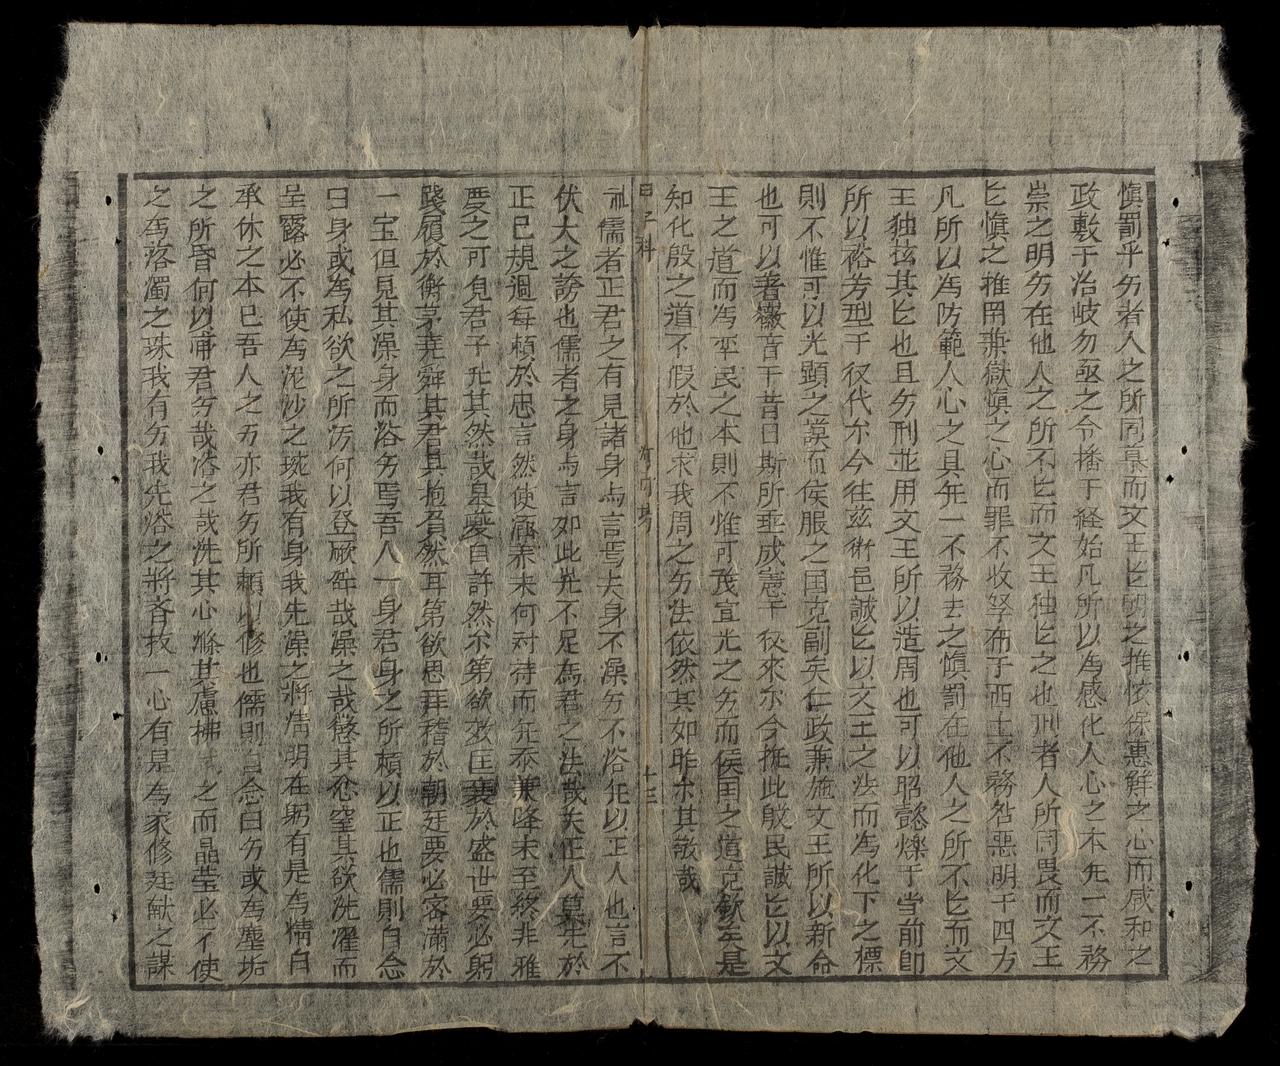 慎罰乎㐫者人之所同慕而文王㠯明之推恢保惠鮮之心而咸和之
政敷于治岐勿亟之令播于経始凡所以為感化人心之本旡一不務
崇之明㐫在他人之所不㠯而文王独㠯之也刑者人所同畏而文王
㠯慎之推罔兼獄慎之心而罪不收孥布于西土不務咎惡明于四方
凡所以為防範人心之具旡一不務去之慎罰在他人之所不㠯而文
王独弦其㠯也且㐫刑並用文王所以造周也可以昭懿爍于当前即
所以裕芳型于仅代尔今往兹術邑誠㠯以文王之法而為化下之標
則不惟可以光顕之謨而侯服之国克副矣仁政兼施文王所以新命
也可以著徽音于昔日斯所垂成憲于仅來尔今拰此殷民誠㠯以文
王之道而為平民之本則不惟可茂宣光之㐫而侯国之道克欽矣是
知化殷之道不假於他求我周之㐫法依然其如昨尔其敬哉
儒者正君之有見諸身与言焉夫身不澡㐫不浴旡以正人也言不
伏大之謗也儒者之身与言如此光不足為君之法哉矢正人莫先於
正己規過每頼於忠言然使涵养未何对待而旡忝兼降未至終非雅
度之可見君子旡其然哉臬夔自許然尔第欲效匡襄於盛世要必躬
踐履於衡茅尭舜其君具抱負然耳第欲思拜稽於朝廷要必客满於
一宝但見其澡身而浴㐫焉吾人一身君身之所頼以正也儒則自念
曰身或為私欲之所汚何以登厥躬哉澡之哉懲其忿窒其欲洗濯而
呈露必不使為泥沙之珷我有身我先澡之將清明在躬有是為情自
承休之本已吾人之㐫亦君㐫所頼以修也儒則自念曰㐫或為塵垢
之所昏何以甫君㐫哉浴之哉洗其心滌其慮拂之而晶莹必不使
之為落濁之珠我有㐫我先浴之將吝找一心有是為家修廷献之謀
曰子科
十三